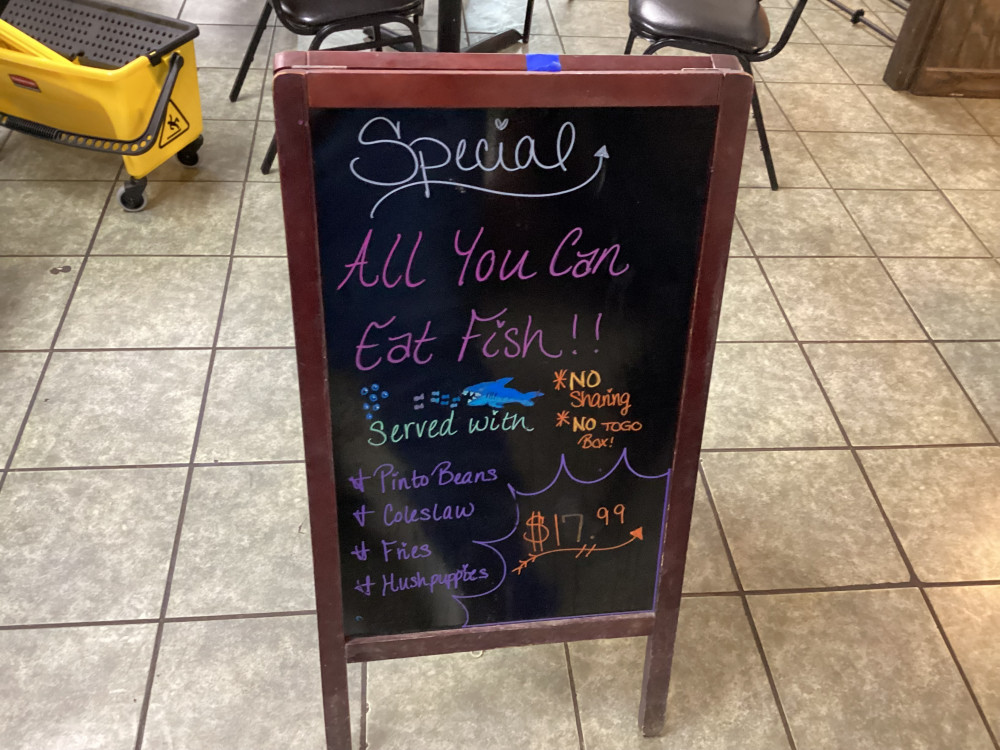 Special
All You Can
Eat Fish!!
*NO
Sharing
*NO TOGO
Box!
Served with
Pinto Beans
Coleslaw
Fries
Hushpuppies
$17.99